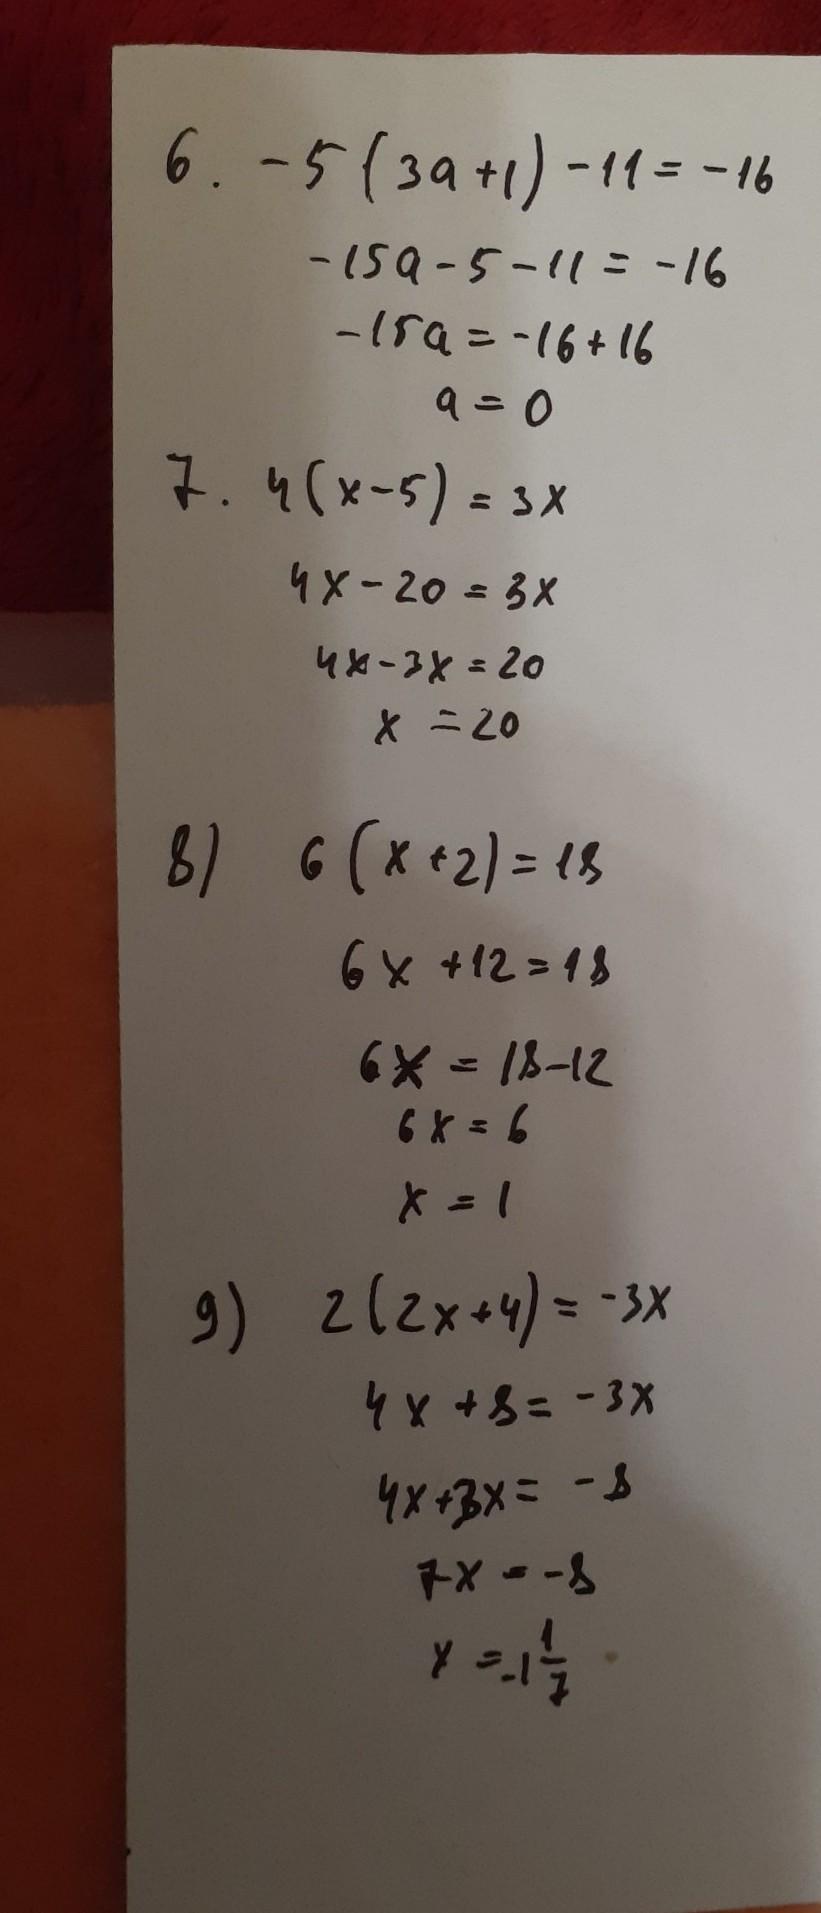 6. -5(3a+1)-11=-16
-15a-5-11=-16
-15a=-16+16
a=0
7. 4(x-5)=3x
4x-20=3x
4x-3x=20
x=20
8) 6(x+2)=18
6x+12=18
6x=18-12
6x=6
x=1
9) 2(2x+4)=-3x
4x+8=-3x
4x+3x=-8
7x=-8
x=-1 1/7